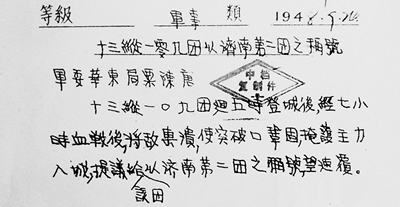 等級 軍事 類 1948.9.24
十三縱一零九团以濟南第二团之稱號
軍委華東局粟陳唐
中档
复制件
十三縱一〇九团迴五時登城後,經七小
時血戰後,將敌𣪠潰,使突破口鞏固,掩護主力
入城,提議給以濟南第二团之稱號,望速覆。
該团